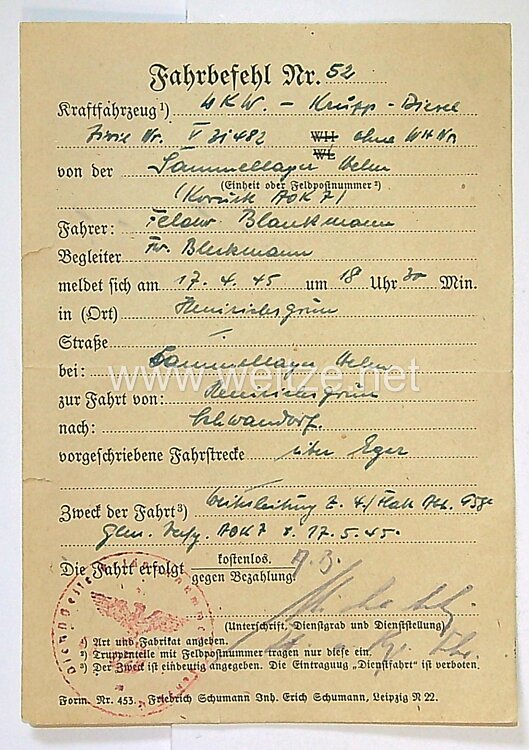 Fahrbefehl Nr. 52
Kraftfahrzeug¹) LKW. - Krupp - Diesel
Nr. V 31482 WH ohne WH Nr
WL
von der Sammellager
(Einheit oder Feldpostnummer²)
(Korück AOK 7)
Fahrer: Blankmann
Begleiter Fw. Bleckmann
meldet sich am 17. 4. 45 um 18 Uhr 30 Min.
in (Ort) Heinrichsgrün
Straße
bei: Sammellager
www.weitze.net
zur Fahrt von: Heinrichsgrün
nach: Schwandorf.
vorgeschriebene Fahrstrecke über Eger
Zweck der Fahrt³)
AOK 7 v. 17.5.45.
Die Fahrt erfolgt kostenlos.
gegen Bezahlung.
(Unterschrift, Dienstgrad und Dienststellung)
¹) Art und Fabrikat angeben.
²) Truppenteile mit Feldpostnummer tragen nur diese ein.
³) Der Zweck ist eindeutig angegeben. Die Eintragung „Dienstfahrt" ist verboten.
Form. Nr. 453. Friedrich Schumann Inh. Erich Schumann, Leipzig N 22.